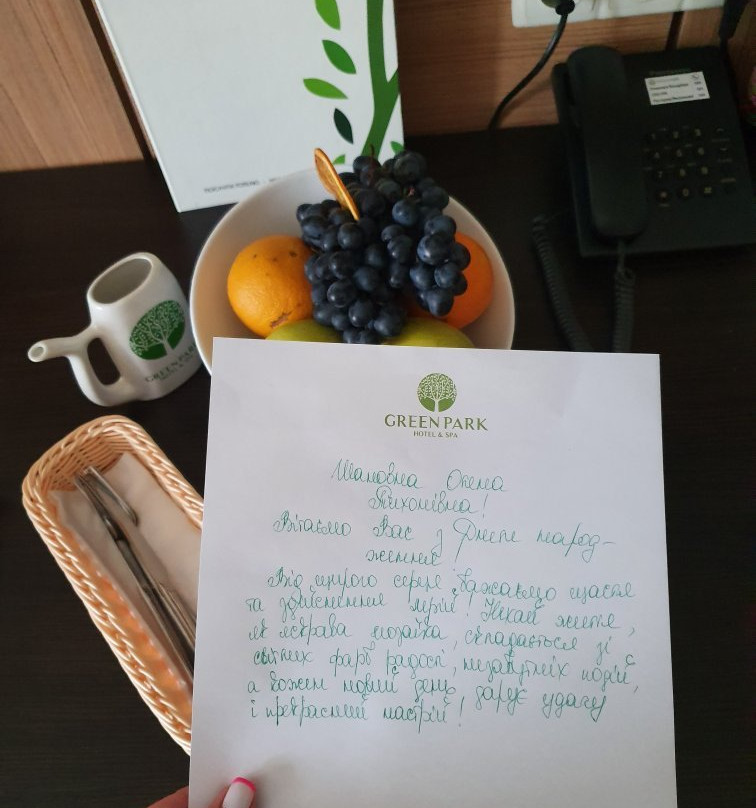 GREEN PARK
GREEN PARK
HOTEL & SPA
Шановна Олена
Тихонівна!
Вітаємо Вас з Днем народ-
ження
Від щирого серця бажаємо щастя
та здійснення мрій! Нехай життя,
як яскрава мозаїка, складається зі
світлих фарб радості, незабутніх подій,
а кожен новий день дарує удачу
і прекрасний настрій!